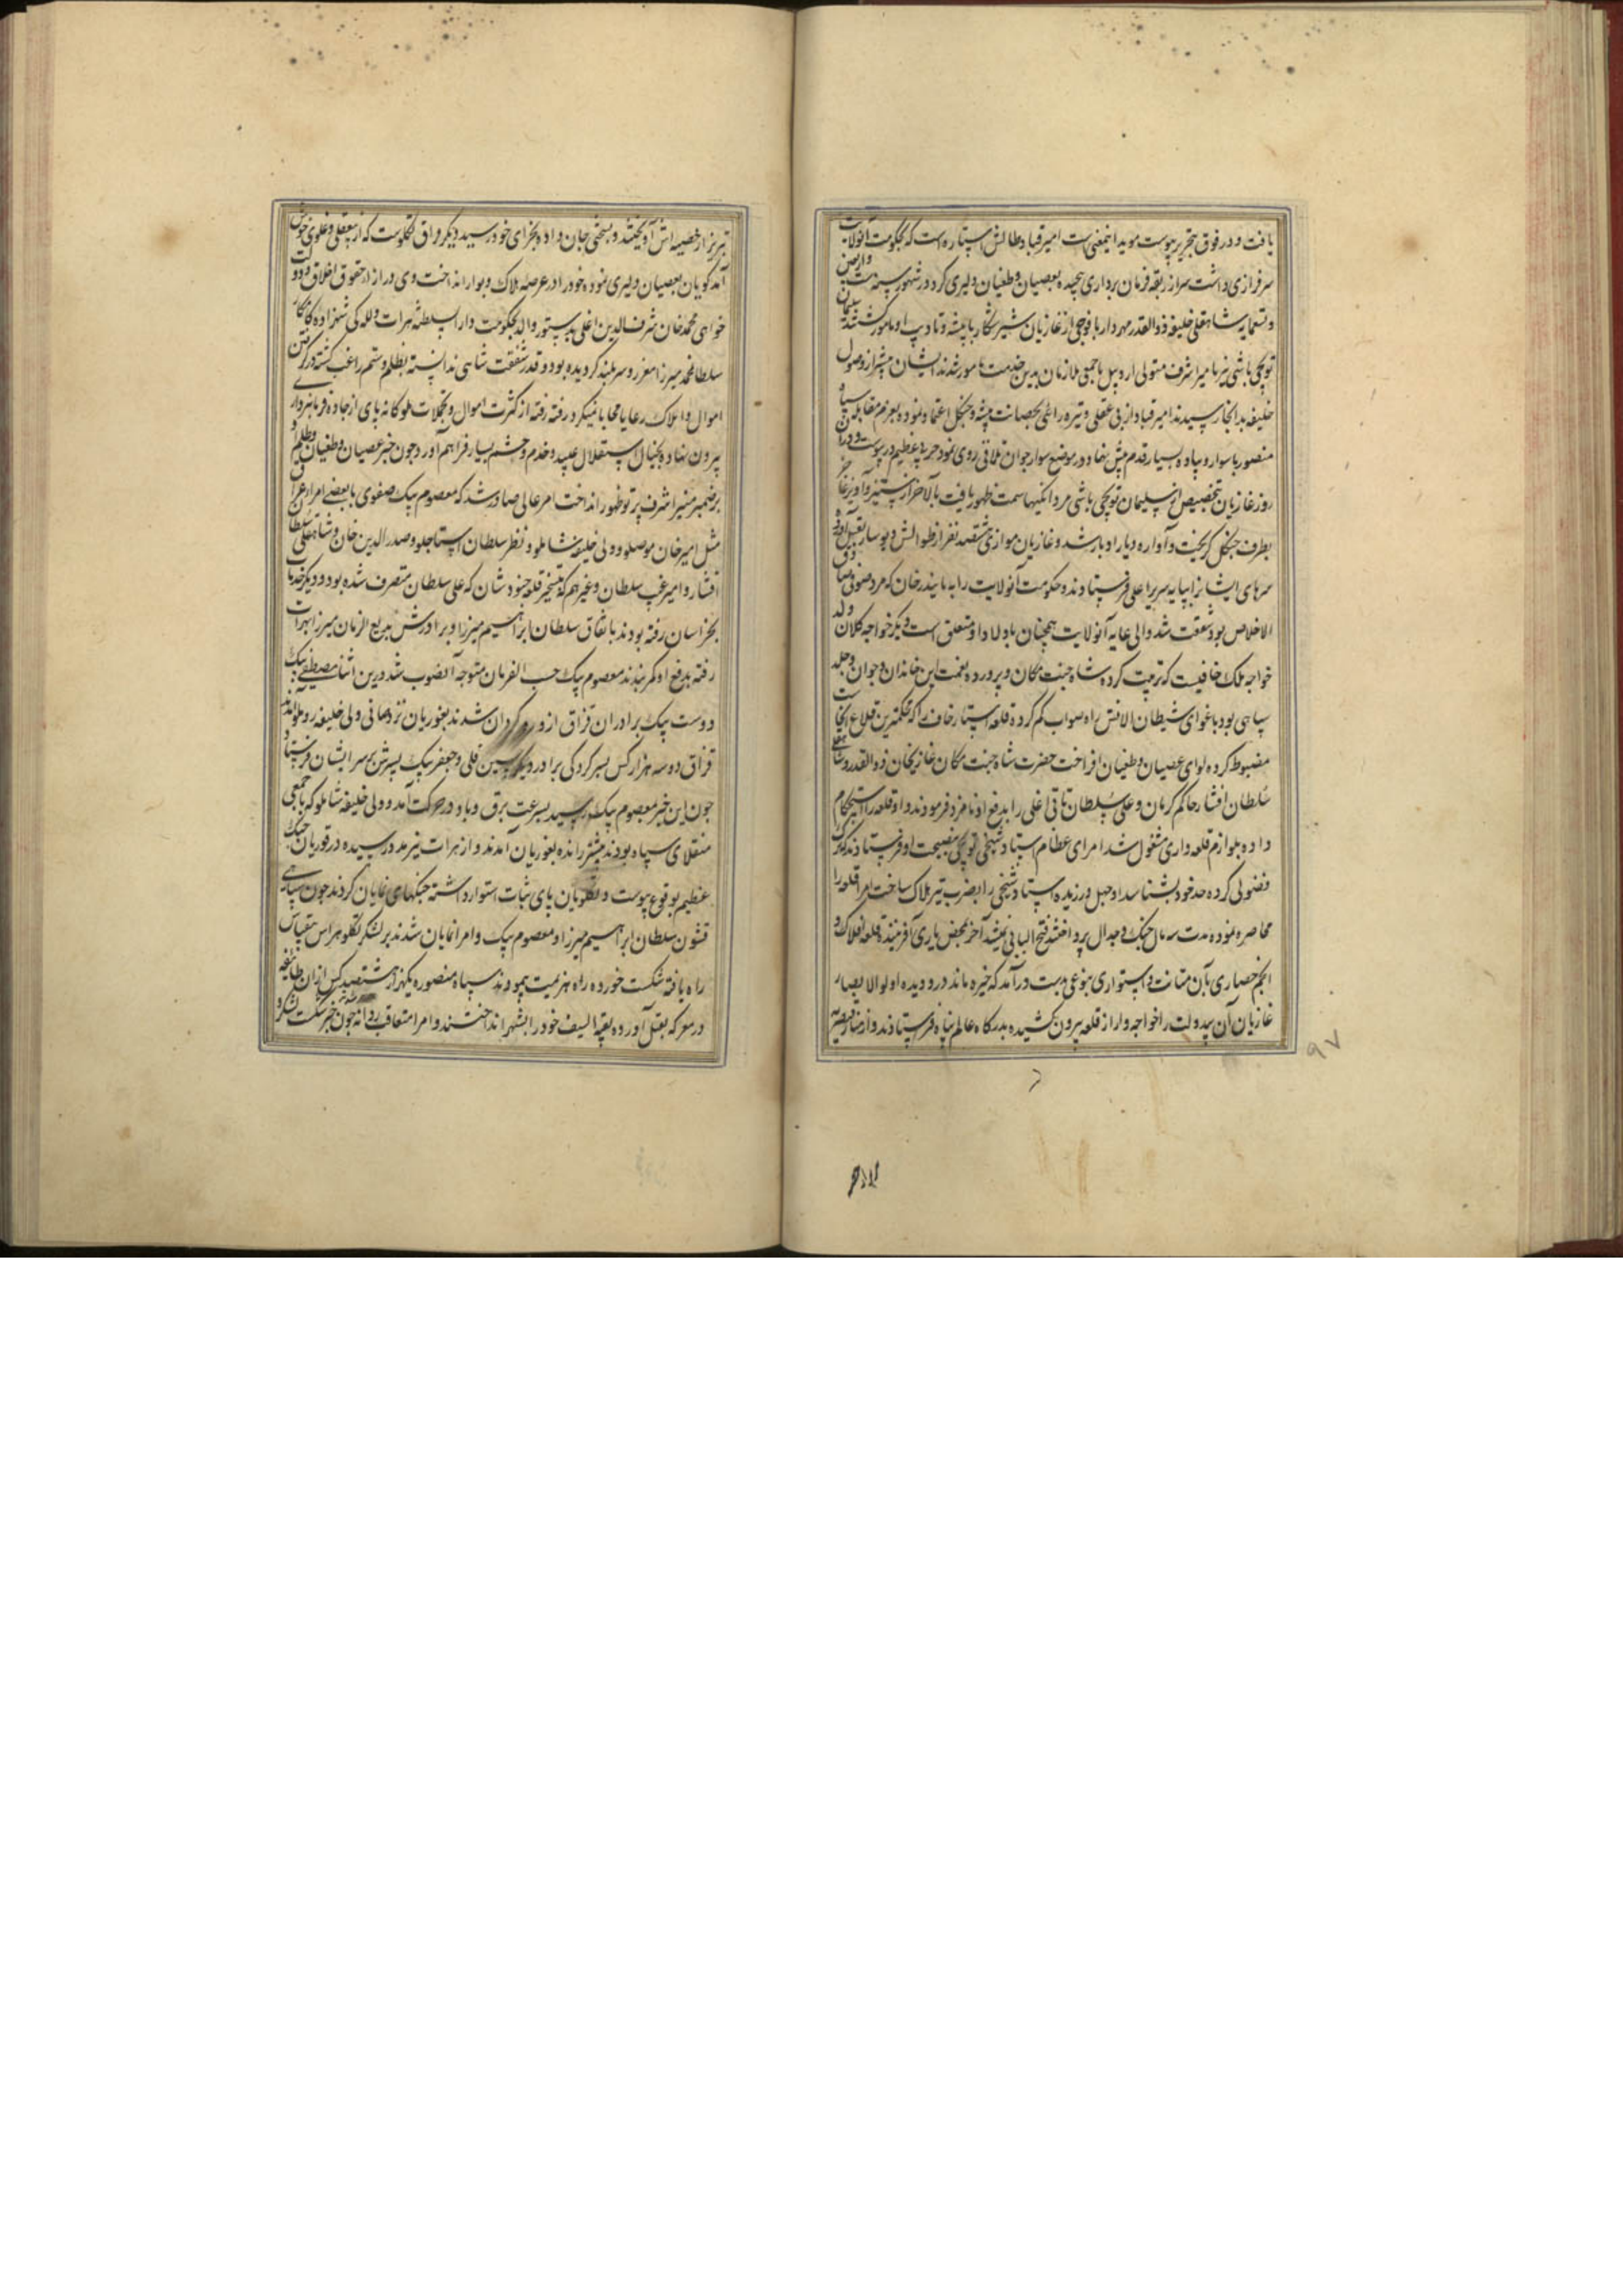 یافت و در فوق بتحریر پیوست موید اینمعنی است امیر قباد طالش استاره است که بحکومت آنولایت
سرفرازی داشت سر از ربقه فرمان برداری پیچیده بعصیان و طغیان دلیری کرد و در شهور سنه
شاهقلی خلیفه ذوالقدر مهردار با فوجی از غازیان شیر شکار به تنبیه و تادیب او مامور گشتند سلیمان
توپچی باشی نیز با میر اشرف متولی اردبیل با جمعی ملازمان بدین خدمت مامور شدند ایشان پیشتر از وصول
خلیفه بدانجا رسیدند امیر قباد از بی عقلی و تیره رائی بحصانت بیشه و جنگل اعتماد نموده بعزم مقابله سپاه
منصور با سوار و پیاده بسیار قدم پیش نهاد و در موضع سوارجوان تلاقی روی نمود حربی عظیم در پیوست و در آن
روز غازیان بتخصیص از سلیمان توپچی باشی مردانگیها سمت ظهور یافت بالاخر از ستیز و آویز غازیان
بطرف جنگل گریخت و آواره دیار ادبار شد و غازیان موازی هشتصد نفر از طوالش و بقتل آورده
سرهای ایشانرا بپایه سریر اعلی فرستادند و حکومت آنولایت را به بایندر خان که مرد صوفی صافی
الاخلاص بود شفقت شد والی غایه آنولایت همچنان باولاد او متعلق است و دیگر خواجه کلان ولد
خواجه ملک خافیست که تربیت کرده شاه جنت مکان و پرورده نعمت این خاندان و جوان و جلد
سپاهی بود باغوای شیطان الانس راه صواب گم کرده قلعه استار خاف را که محکمترین قلاع آنجاست
مضبوط کرده لوای عصیان و طغیان افراخت حضرت شاه جنت مکان غازیخان ذوالقدر و شاهقلی
سلطان افشار حاکم کرمان و علی سلطان تاتی اغلی را بدفع او نامزد فرمودند و او قلعه را استحکام
داده بلوازم قلعه داری مشغول شد امرای عظام استاد شیخی توپچی بنصیحت او فرستادند که
فضولی کرده حد خود بشناسد او جهل ورزیده استاد شیخی را بضرب تیر هلاک ساخت امرا قلعه را
محاصره نموده مدت سه سال جنگ و جدال پرداختند فتح البابی نمیشد آخر بمحض یاری آفریننده قلعه افلاک و
انجم حصاری بآن متانت و استواری بنوعی بدست درآمد که خیره ماند درو دیده اولوالابصار
غازیان آن بیدولت را خواجه وار از قلعه بیرون کشیده بدرگاه عالم پناه فرستادند و از مناره قیصریه
۹۷
تبریز از خصیه اش آویختند و بسختی جان داده بجزای خود رسید دیگر قزاق تکلوست که از بیعقلی و غلوی خوش
آمدگویان بعصیان دلیری نموده خود را در عرصه هلاک و بوار انداخت وی در ازاء حقوق اخلاق و دولت
خواهی محمد خان شرف الدین اغلی بدستور والد بحکومت دارالسلطنه هرات و للگی شهزاده کامکار
سلطان محمد میرزا معزز و سربلند گردیده بود و قدر شفقت شاهی ندانسته بظلم و ستم راغب گشته در گرفتن
اموال و املاک رعایا محابا نمیکرد رفته رفته از کثرت اموال و تجملات ملوکانه پای از جاده فرمانبرداری
بیرون نهاده بخیال استقلال عبید و خدم و حشم بسیار فراهم آورد چون خبر عصیان و طغیان و ظلم او
بر ضمیر منیر اشرف پرتو ظهور انداخت امر عالی صادر شد که معصوم بیک صفوی با بعضی امراء عراق
مثل امیر خان موصلو و ولی خلیفه شاملو و نظر سلطان استاجلو و صدرالدین خان و شاهقلی سلطان
افشار و امیر غیب سلطان و غیر هم که بتسخیر قلعه خبوشان که علی سلطان متصرف شده بود و دیگر خدمات
بخراسان رفته بودند باتفاق سلطان ابراهیم میرزا و برادرش بدیع الزمان میرزا بهرات
رفته بدفع او کمر بندند معصوم بیک حسب الفرمان متوجه آنصوب شد درین اثنا مصطفی بیک
دوست بیک برادران قزاق ازو روگردان شدند بغوریان نزد و ولی خلیفه روملو آمدند
قزاق دو سه هزار کس بسرکردگی برادر دیگر حسین قلی و جعفر بیک پسرش بر سر ایشان فرستاد
چون این خبر معصوم بیک رسید بسرعت برق و باد در حرکت آمد و ولی خلیفه شاملو که با جمعی
منقلای سپاه بودند پیشتر رانده بغوریان آمدند و از هرات نیز مدد رسیده در غوریان جنگ
عظیم بوقوع پیوست و تکلویان پای ثبات استوار داشته جنگهای نمایان کردند چون سیاهی
قشون سلطان ابراهیم میرزا و معصوم بیک و امرا نمایان شدند بر لشکر تکلو هراس بیقیاس
راه یافته شکست خورده راه هزیمت پیمودند سپاه منصوره یکهزار و هشتصد کس از آن طایفه
در معرکه بقتل آورده بقیه السیف خود را بشهر انداختند و امرا متعاقب روانه شدند چون خبر شکست لشکر و